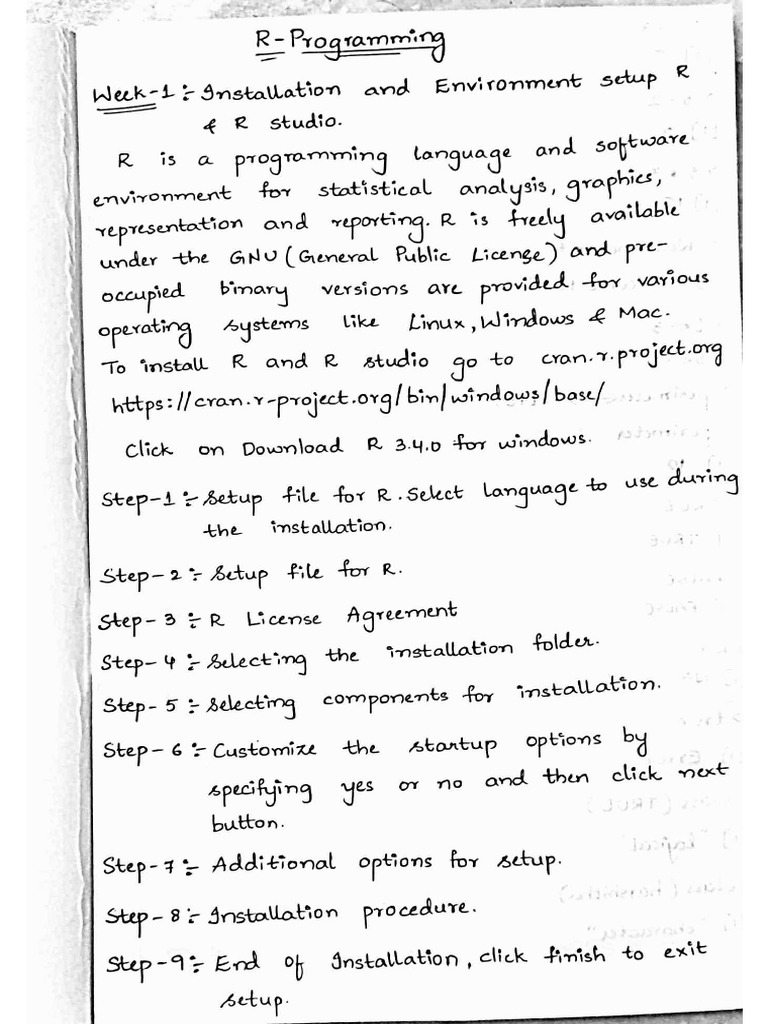 R-Programming
Week-1:- Installation and Environment setup R
& R studio.
R is a programming language and software
environment for statistical analysis, graphics,
representation and reporting. R is freely available
under the GNU (General Public License) and pre-
occupied binary versions are provided for various
operating systems like Linux, Windows & Mac.
To install R and R studio go to cran.r.project.org
https://cran.r-project.org/bin/windows/base/
Click on Download R 3.4.0 for windows.
Step-1:- Setup file for R. Select language to use during
the installation.
Step-2:- Setup file for R.
Step-3:- R License Agreement
Step-4:- Selecting the installation folder.
Step-5:- Selecting components for installation.
Step-6:- Customize the startup options by
specifying yes or no and then click next
button.
Step-7:- Additional options for setup.
Step-8:- Installation procedure.
Step-9:- End of Installation, click finish to exit
setup.